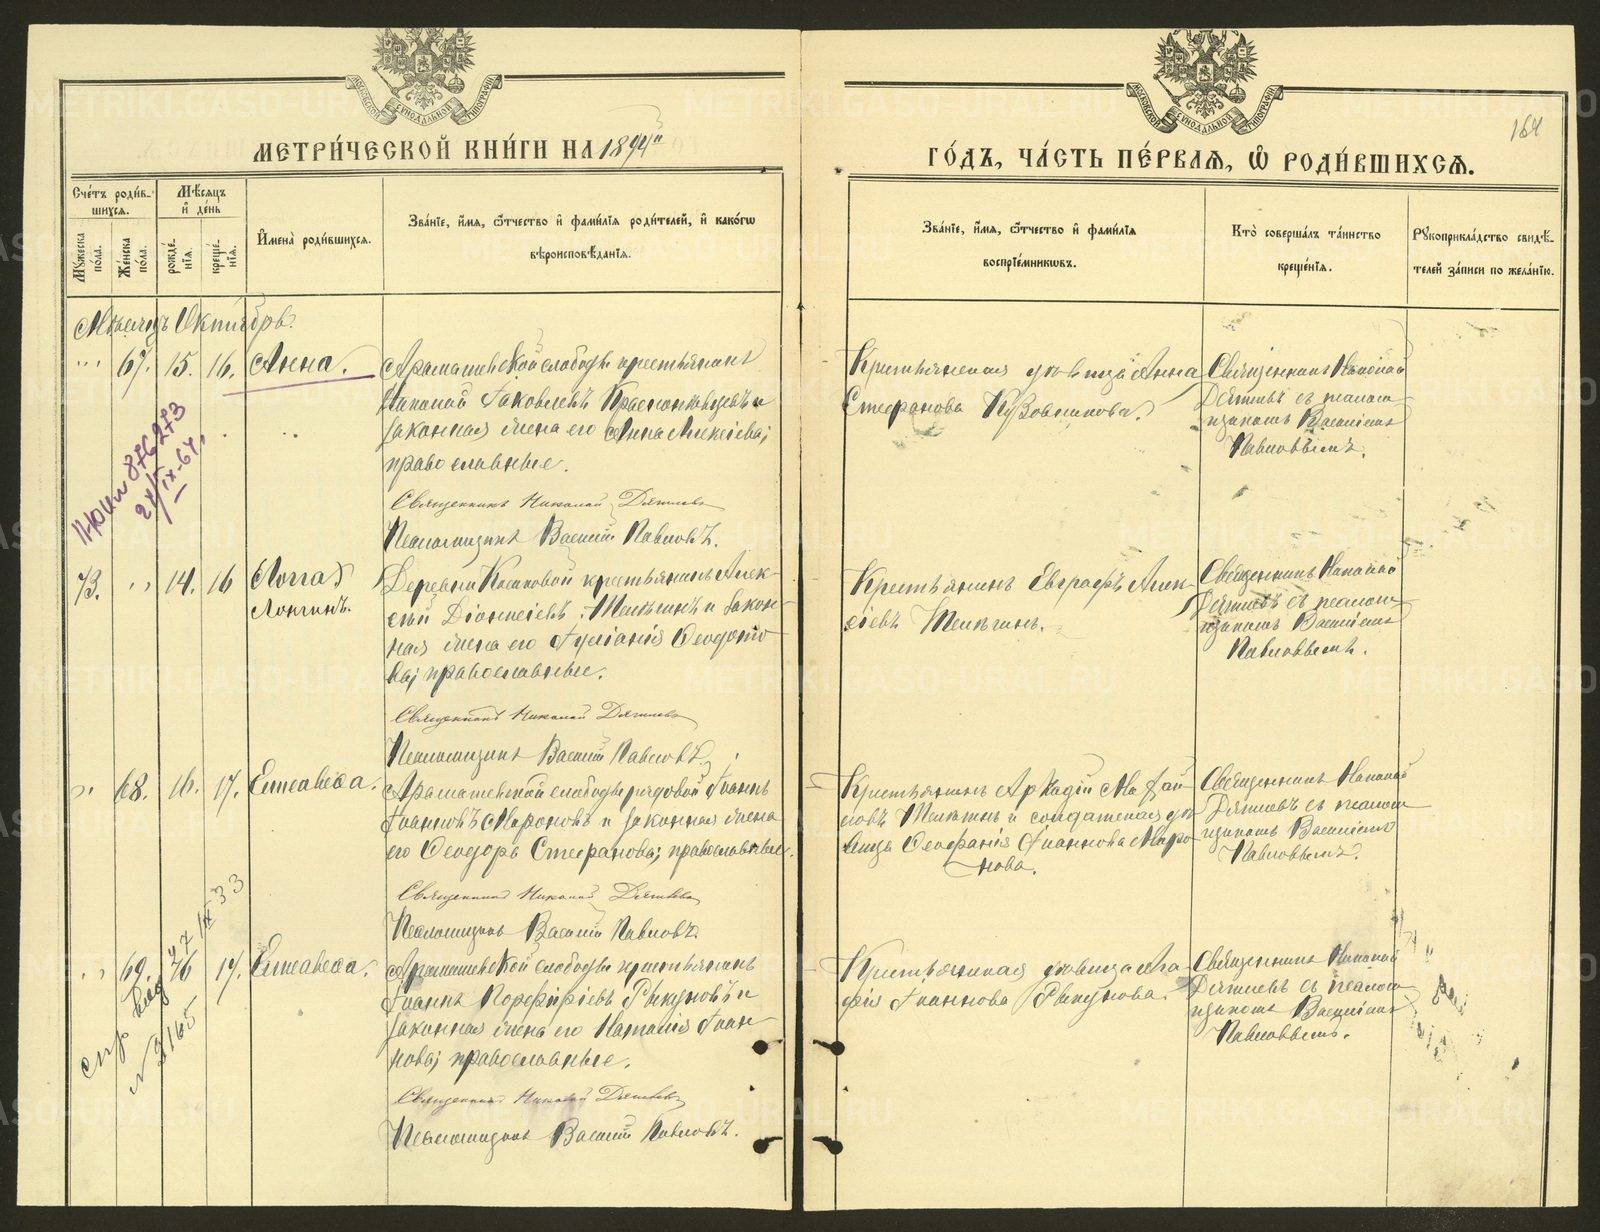 МЕТРИ́ЧЕСКОЙ КНИ́ГИ НА 1894й
ГО́ДЪ, ЧА́СТЬ ПЕ́РВАѦ, Ѽ РОДИ́ВШИХСѦ.
164
Сче́тъ роди́в-
шихсѧ.
Мѣ́сѧцъ
и҆ де́нь
Мꙋ́жеска по́ла.
Же́нска по́ла.
рожде́-
нїѧ.
креще́-
нїѧ.
И҆мена̀ роди́вшихсѧ.
Зва́нїе, и҆́мѧ, ѻ҆́тчество и҆ фами́лїѧ роди́телей, и҆ како́гѡ
вѣроисповѣ́данїѧ.
Зва́нїе, и҆́мѧ, ѻ҆́тчество и҆ фами́лїѧ
воспрїе́мникѡвъ.
Кто̀ соверша́лъ та́инство
креще́нїѧ.
Рꙋкоприкла́дство свидѣ́-
телей за́писи по жела́нїю.
Мѣсяцъ Октябрь.
" 67. 15. 16. Анна.
Арамашевской слободы крестьянинъ
Николай Іаковлевъ и
законная жена его Анна Алексѣева;
православные.
Священникъ Николай Дягилевъ
Псаломщикъ Василій Павловъ.
Крестьянская дѣвица Анна
Стефанова Кузовникова.
Священникъ Николай
Дягилевъ съ псалом-
щикомъ Василіемъ
Павловымъ.
876273
IX-64.
73. " 14. 16
Лонгинъ.
Деревни крестьянинъ Алек-
сѣй Діонисіевъ Шелыгинъ и закон-
ная жена его Іуліанія Ѳеодото-
ва; православные.
Священникъ Николай Дягилевъ
Псаломщикъ Василій Павловъ.
Крестьянинъ Евграфъ Алек-
сѣевъ Шелыгинъ.
Священникъ Николай
Дягилевъ съ псалом-
щикомъ Василіемъ
Павловымъ.
" 68. 16. 17. Елисавета.
Арамашевской слободы рядовой Іоаннъ
Іоанновъ Мароновъ и законная жена
его Ѳеодора Стефанова; православные.
Священникъ Николай Дягилевъ
Псаломщикъ Василій Павловъ.
Крестьянинъ Аркадій
Шелыгинъ и солдатская дѣ-
вица Ѳеофанія Іоаннова Маро-
нова.
Священникъ Николай
Дягилевъ съ псалом-
щикомъ Василіемъ
Павловымъ.
" 69. 16 17. Елисавета.
Арамашевской слободы крестьянинъ
Іоаннъ Порфиріевъ Рякуновъ и
законная жена его Наталія Іоан-
нова; православные.
Священникъ Николай Дягилевъ
Псаломщикъ Василій Павловъ.
Крестьянская дѣвица Ага-
фія Іоаннова Рякунова.
Священникъ Николай
Дягилевъ съ псалом-
щикомъ Василіемъ
Павловымъ.
27/IX 33
№ 3165
METRIKI.GASO-URAL.RU